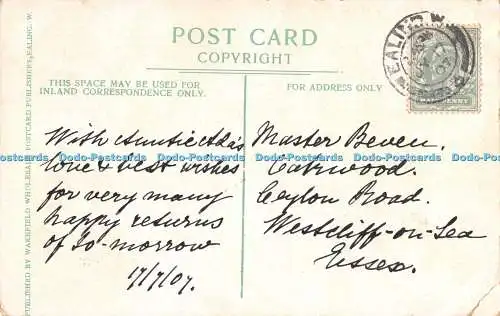 POST CARD
COPYRIGHT
THIS SPACE MAY BE USED FOR
INLAND CORRESPONDENCE ONLY.
FOR ADDRESS ONLY
With Auntie Ada's
love & best wishes
for very many
happy returns
of to-morrow
17/7/07.
Master Beven.
Oakwood.
Ceylon Road.
Westcliff-on-Sea
Essex.
EALING. W.
HALFPENNY
PUBLISHED BY WAKEFIELD, WHOLESALE POSTCARD PUBLISHER, EALING. W.
Postcards Postcards Postcards Postcards Postcards Postcards